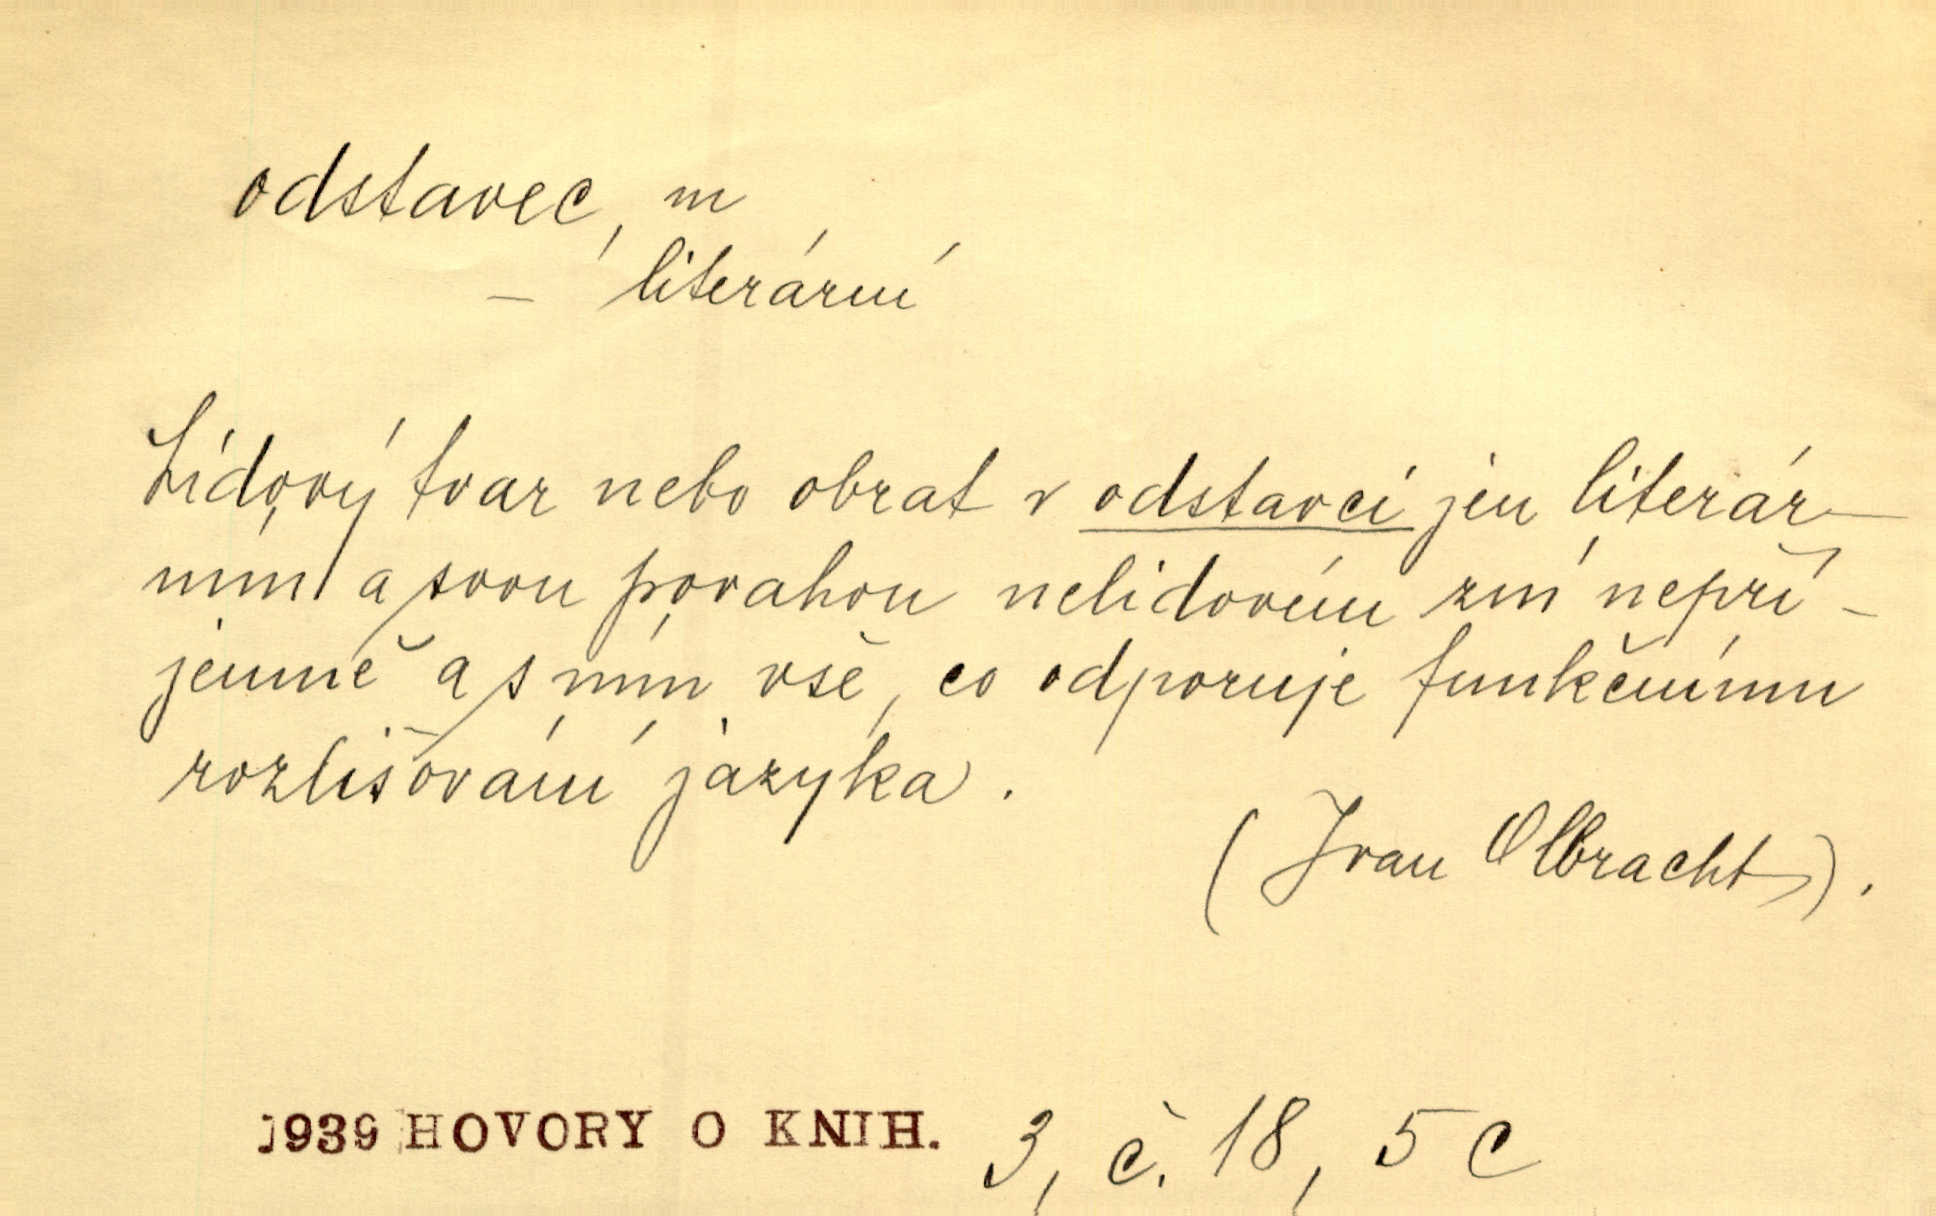 odstavec, m
– literární
Lidový tvar nebo obrat v odstavci jen literár-
ním a svou povahou nelidovém zní nepří-
jemně a s ním vše, co odporuje funkčnímu
rozlišování jazyka.
(Ivan Olbracht).
1939 HOVORY O KNIH. 3, č. 18, 5 c